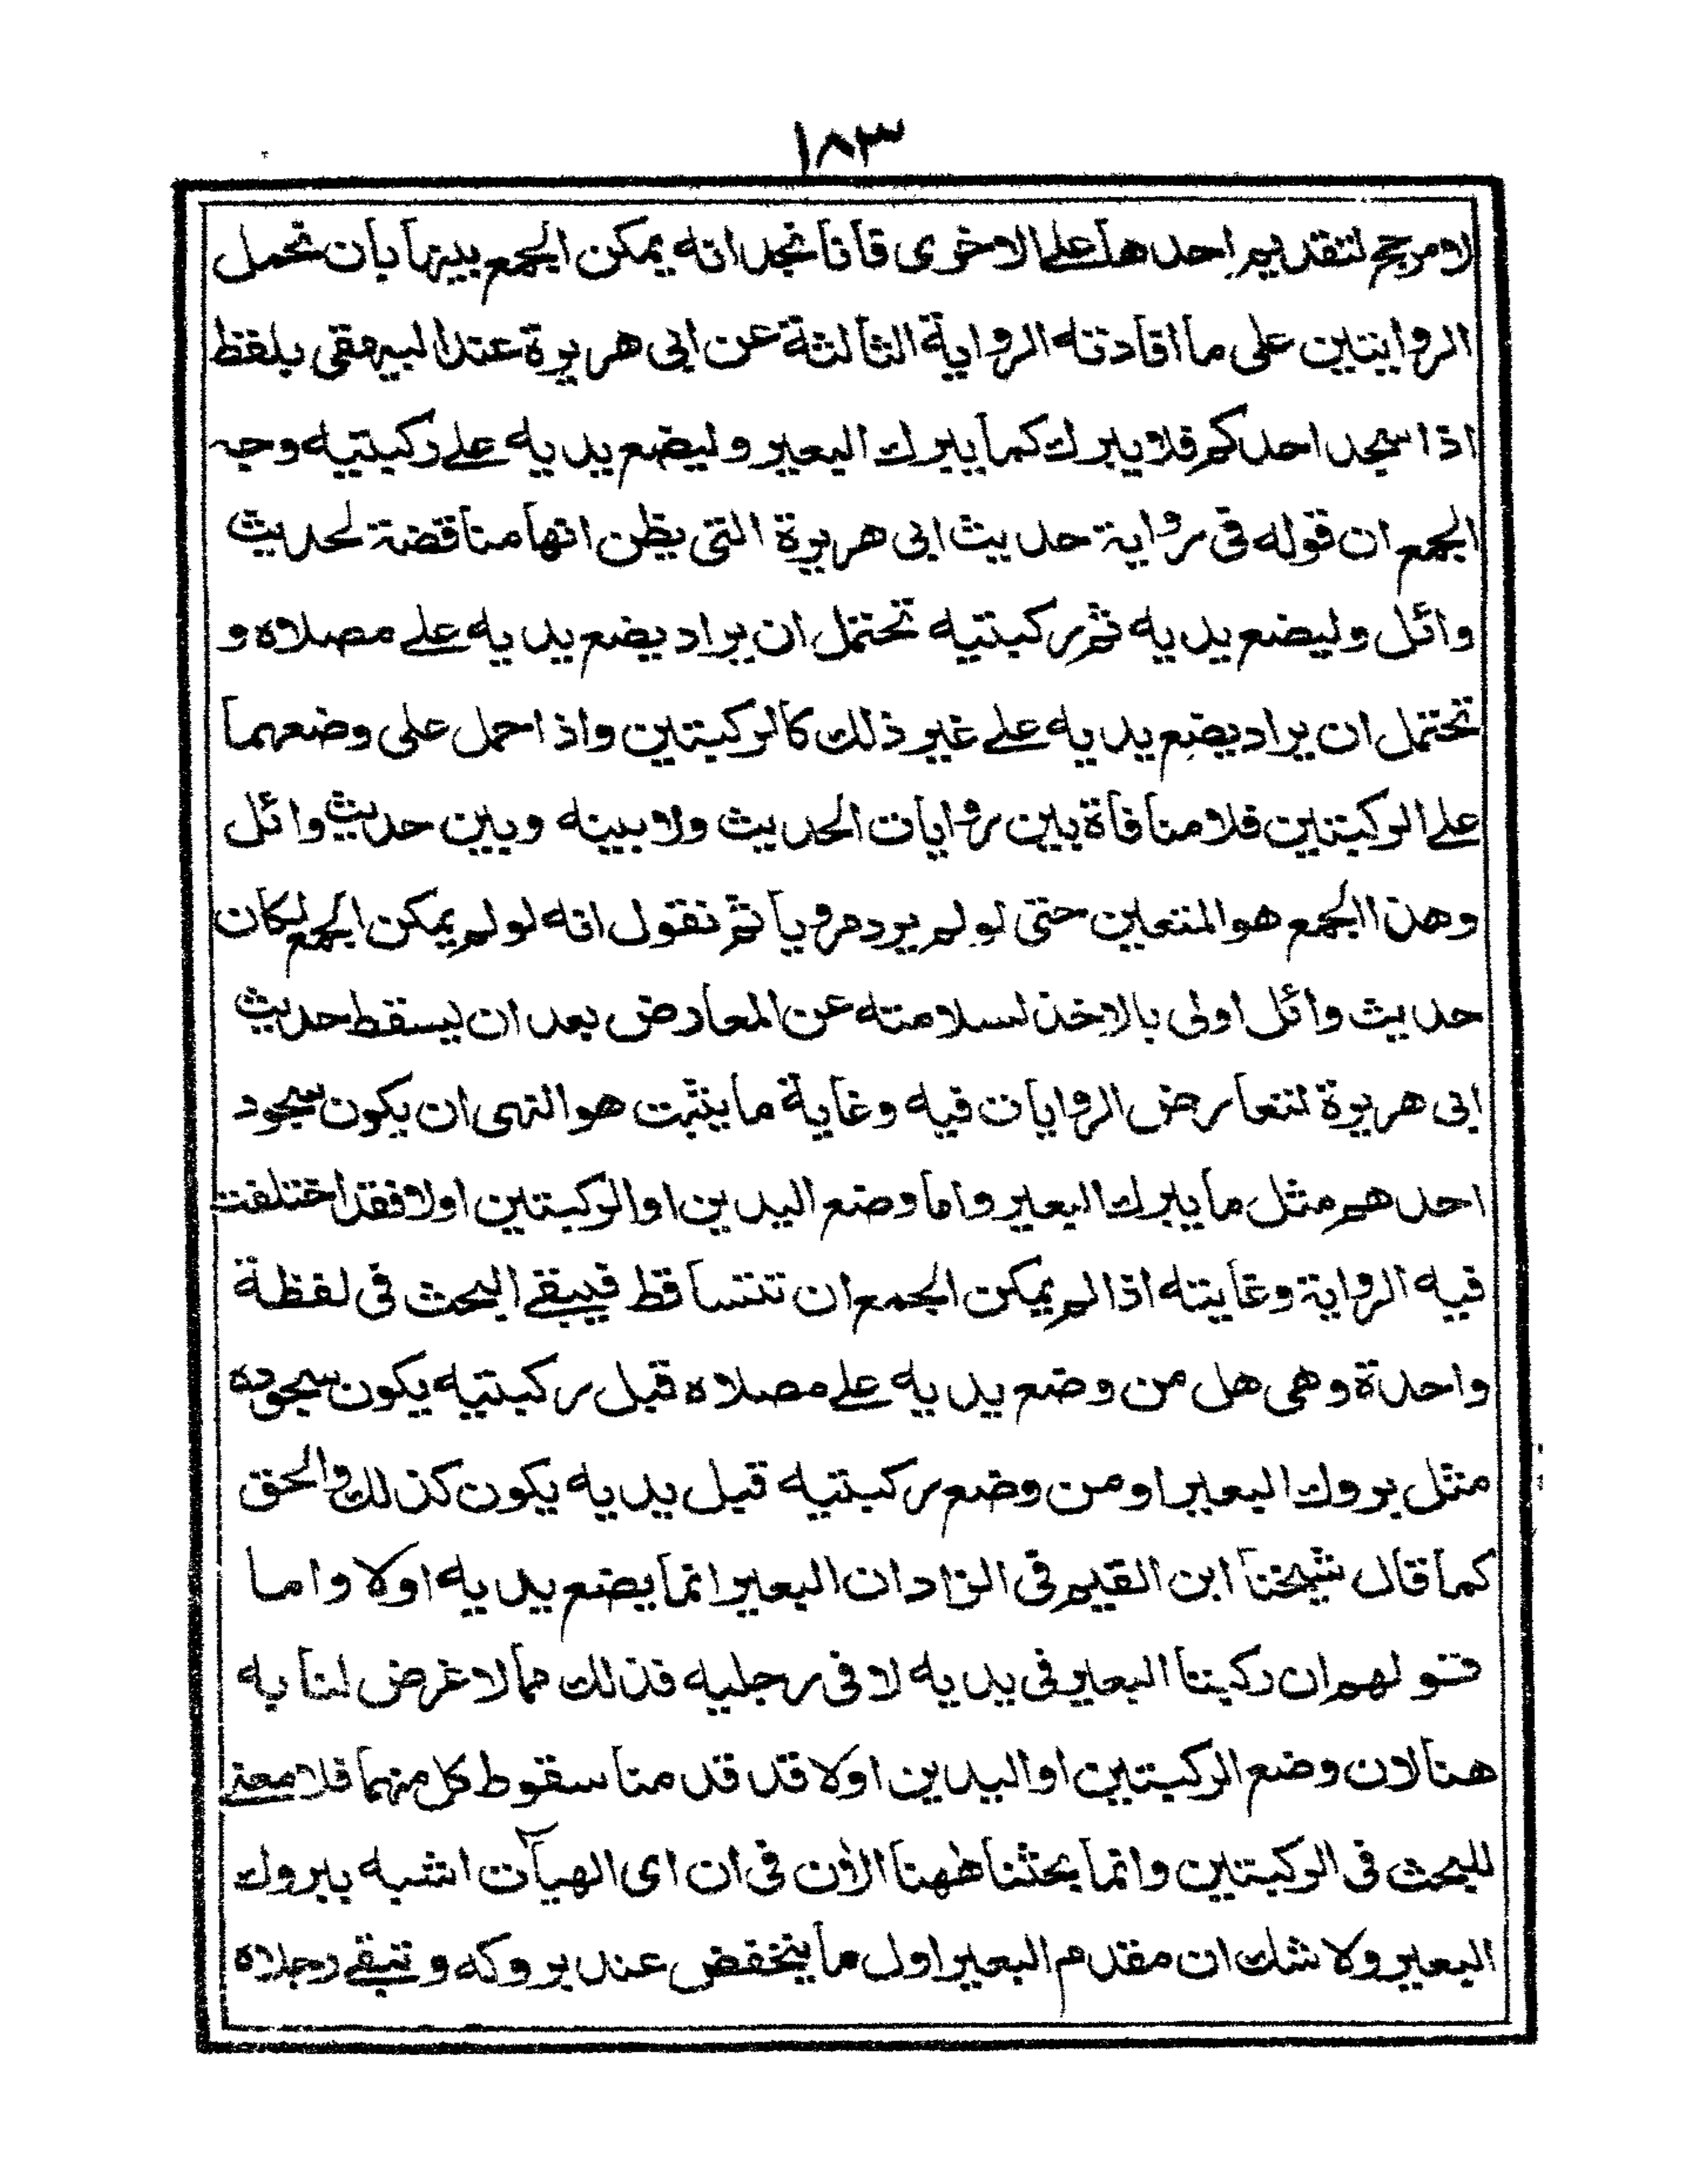 ١٨٣
لا مرجح لتقديم احدها على الاخرى فانا نجد انه يمكن الجمع بينها بان نحمل
الروايتين على ما افادته الرواية الثالثة عن ابى هريرة عند البيهقى بلفظ
اذا سجد احدكم فلا يبرك كما يبرك البعير وليضع يديه على ركبتيه وجه
الجمع ان قوله فى رواية حديث ابى هريرة التى يظن انها مناقضة لحديث
وائل وليضع يديه ثم ركبتيه تحتمل ان يراد يضع يديه على مصلاه و
تحتمل ان يراد يضع يديه على غير ذلك كالركبتين واذا حمل على وضعهما
على الركبتين فلا منافاة بين روايات الحديث ولا بينه وبين حديث وائل
وهذا الجمع هو المتعين حتى لو لم يرد مرويا ثم نقول انه لو لم يمكن الجمع لكان
حديث وائل اولى بالاخذ لسلامته عن المعارض بعد ان يسقط حديث
ابى هريرة لتعارض الروايات فيه وغاية ما يثبت هو النهى ان يكون سجود
احدهم مثل ما يبرك البعير واما وضع اليدين او الركبتين اولا فقد اختلفت
فيه الرواية وغايته اذا لم يمكن الجمع ان تتساقط فيبقى البحث فى لفظة
واحدة وهى هل من وضع يديه على مصلاه قبل ركبتيه يكون سجوده
مثل بروك البعير او من وضع ركبتيه قبل يديه يكون كذلك والحق
كما قال شيخنا ابن القيم فى الزاد ان البعير انما يضع يديه اولا واما
قولهم ان ركبتا البعير فى يديه لا فى رجليه فذلك مما لا غرض لنا به
هنا لان وضع الركبتين او اليدين اولا قد قدمنا سقوط كل منهما فلا معنى
للبحث فى الركبتين وانما بحثنا ههنا الأن فى ان اى الهيآت اشبه ببروك
البعير ولا شك ان مقدم البعير اول ما ينخفض عند بروكه وتبقى رجلاه